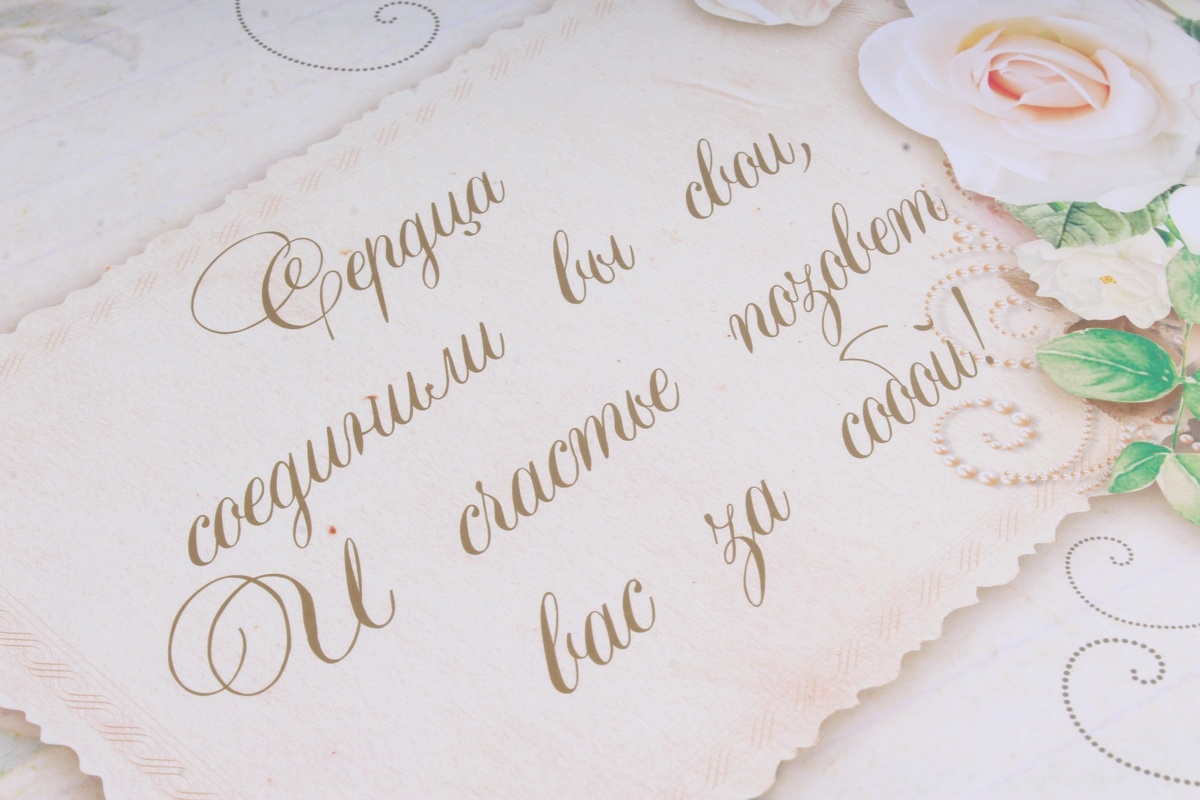 Сердца
соединили вы свои,
И счастье позовет
вас за собой!